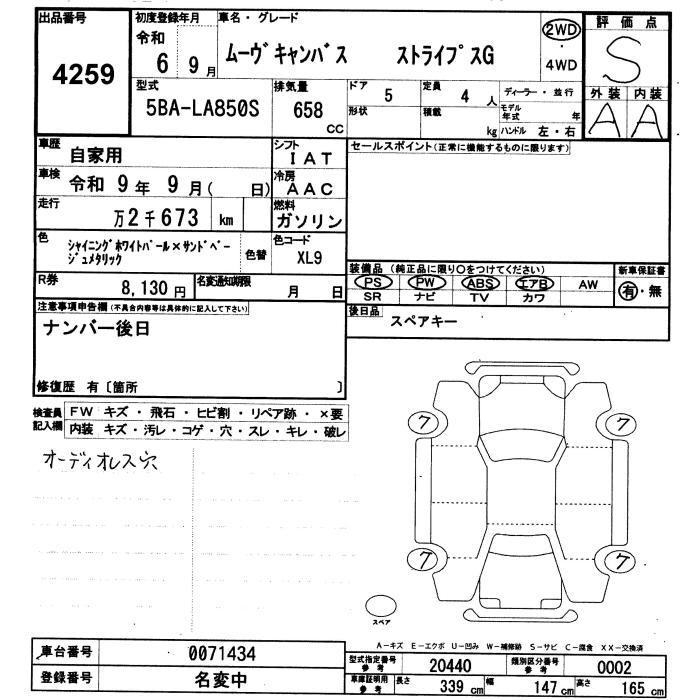 出品番号
4259
初度登録年月
令和
6 9月
車名・グレード
ムーヴキャンバス ストライプスG
2WD
・
4WD
評価点
S
外装 内装
A A
型式
5BA-LA850S
排気量
658
cc
ドア
5
定員
4 人
形状
積載
kg
ディーラー・並行
モデル年式 年
ハンドル 左・右
車歴
自家用
シフト
IAT
車検
令和 9年 9月( 日)
冷房
AAC
走行
万2千673 km
燃料
ガソリン
色
シャイニングホワイトパール×サンドベー
ジュメタリック
色替
色コード
XL9
R券
8,130円
名変通知期限
月 日
セールスポイント(正常に機能するものに限ります)
装備品 (純正品に限り○をつけてください)
PS PW ABS エアB AW
SR ナビ TV カワ
新車保証書
有・無
後日品
スペアキー
注意事項申告欄(不具合内容等は具体的に記入して下さい)
ナンバー後日
修復歴 有〔箇所 〕
検査員
記入欄
FW キズ・飛石・ヒビ割・リペア跡・×要
内装 キズ・汚レ・コゲ・穴・スレ・キレ・破レ
オーディオレス穴
7 7
7 7
スペア
A-キズ E-エクボ U-凹み W-補修跡 S-サビ C-腐食 XX-交換済
車台番号
0071434
登録番号
名変中
型式指定番号
参考
20440
類別区分番号
参考
0002
車庫証明用
参考
長さ 339cm 幅 147cm 高さ 165cm